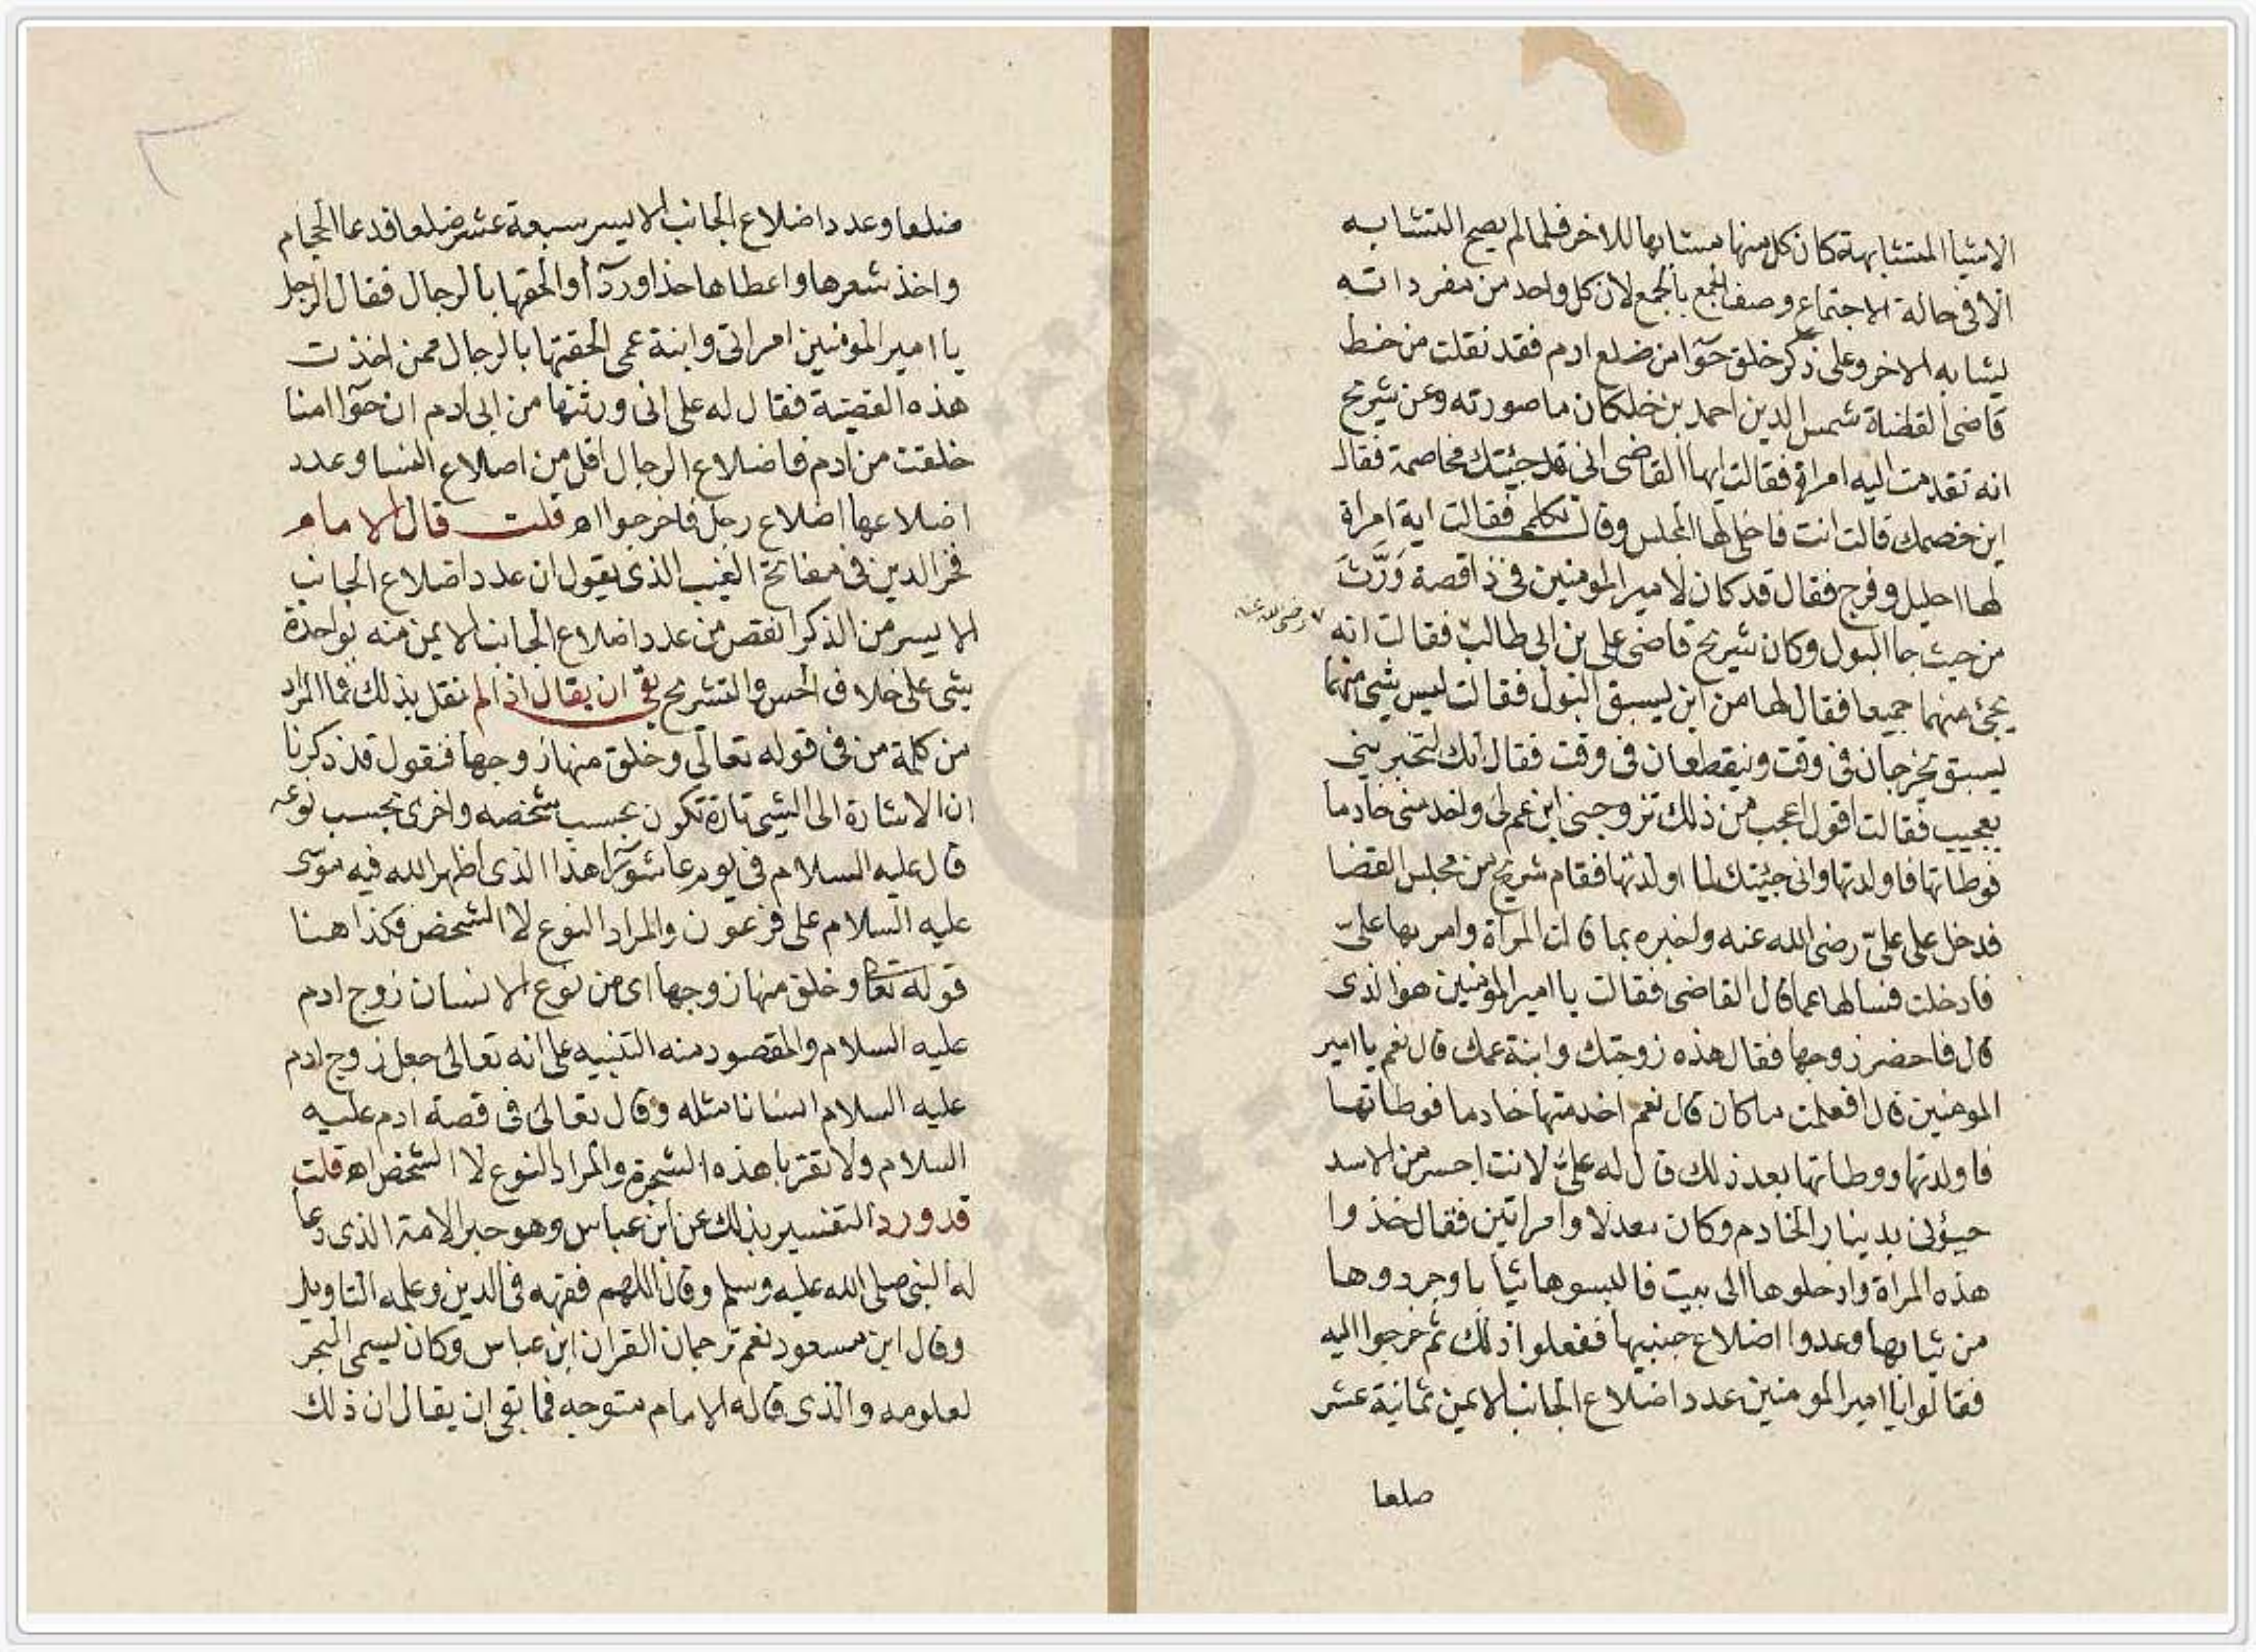 الاشيا المتشابهة كان كل منها مشابها للاخر فلما لم يصح التشابه
الا فى حالة الاجتماع وصف الجمع بالجمع لان كل واحد من مفرداته
يشابه الاخر وعلى ذكر خلق حوّا من ضلع ادم فقد نقلت من خط
قاضى القضاة شمس الدين احمد بن خلكان ما صورته وعن شريح
انه تقدمت اليه امراة فقالت ايها القاضى انى قد جئيتك مخاصمة فقال
اين خصمك قالت انت فاخلى لها المجلس وقال تكلمى فقالت اية امراة
لها احليل وفرج فقال قد كان لامير المومنين فى ذا قصة وَرَّثَ
من حيث جا البول وكان شريح قاضى على بن ابى طالب فقالت انه
رضى الله عنه
يجئ منهما جميعا فقال لها من اين يسبق البول فقالت ليس شى منهما
يسبق يخرجان فى وقت وينقطعان فى وقت فقال انك لتخبرينى
بعجيب فقالت اقول اعجب من ذلك تزوجنى ابن عم لى واخدمنى خادما
فوطاتها فاولدتها وانى جئيتك لما اولدتها فقام شريح من مجلس القضا
فدخل على علىّ رضى الله عنه واخبره بما قالت المراة وامر بها علىّ
فادخلت فسالها عما قال القاضى فقالت يا امير المومنين هو الذى
قال فاحضر زوجها فقال هذه زوجتك وابنة عمك قال نعم يا امير
المومنين قال افعلمت ما كان قال نعم اخدمتها خادما فوطاتها
فاولدتها ووطاتها بعد ذلك قال له علىّ لانت اجسر من الاسد
جيؤنى بدينار الخادم وكان معدلا وامراتين فقال خذوا
هذه المراة وادخلوها الى بيت فالبسوها ثيابا وجردوها
من ثيابها وعدوا اضلاع جنبيها ففعلوا ذلك ثم خرجوا اليه
فقالوا يا امير المومنين عدد اضلاع الجانب الايمن ثمانية عشر
ضلعا
ضلعا وعدد اضلاع الجانب الايسر سبعة عشر ضلعا فدعا الحجام
واخذ شعرها واعطاها حذا وردآ والحقها بالرجال فقال الرجل
يا امير المومنين امراتى وابنة عمى الحقتها بالرجال ممن اخذت
هذه القضية فقال له على انى ورثتها من ابى ادم ان حوّا امنا
خلقت من ادم فاضلاع الرجال اقل من اضلاع النسا وعدد
اضلاعها اضلاع رجل فاخرجوا اه قلت قال الامام
فخر الدين فى مفاتح الغيب الذى يقول ان عدد اضلاع الجانب
الايسر من الذكر انقص من عدد اضلاع الجانب الايمن منه بواحدة
شى على خلاف الحس والتشريح بقى ان يقال اذا لم نقل بذلك فما المراد
من كلمة من فى قوله تعالى وخلق منها زوجها فنقول قد ذكرنا
ان الاشارة الى الشى تارة تكون بحسب شخصه واخرى بحسب نوعه
قال عليه السلام فى يوم عاشورا هذا الذى اظهر الله فيه موسى
عليه السلام على فرعون والمراد النوع لا الشخص فكذا هنا
قوله تعا وخلق منها زوجها اى من نوع الانسان زوج ادم
عليه السلام والمقصود منه التنبيه على انه تعالى جعل زوج ادم
عليه السلام انسانا مثله وقال تعالى فى قصة ادم عليه
السلام ولا تقربا هذه الشجرة والمراد النوع لا الشخص اه قلت
قد ورد التفسير بذلك عن ابن عباس وهو حبر الامة الذى دعا
له النبى صلى الله عليه وسلم وقال اللهم فقهه فى الدين وعلمه التاويل
وقال ابن مسعود نعم ترجمان القران ابن عباس وكان يسمى البحر
لعلومه والذى قاله الامام متوجه فما بقى ان يقال ان ذلك